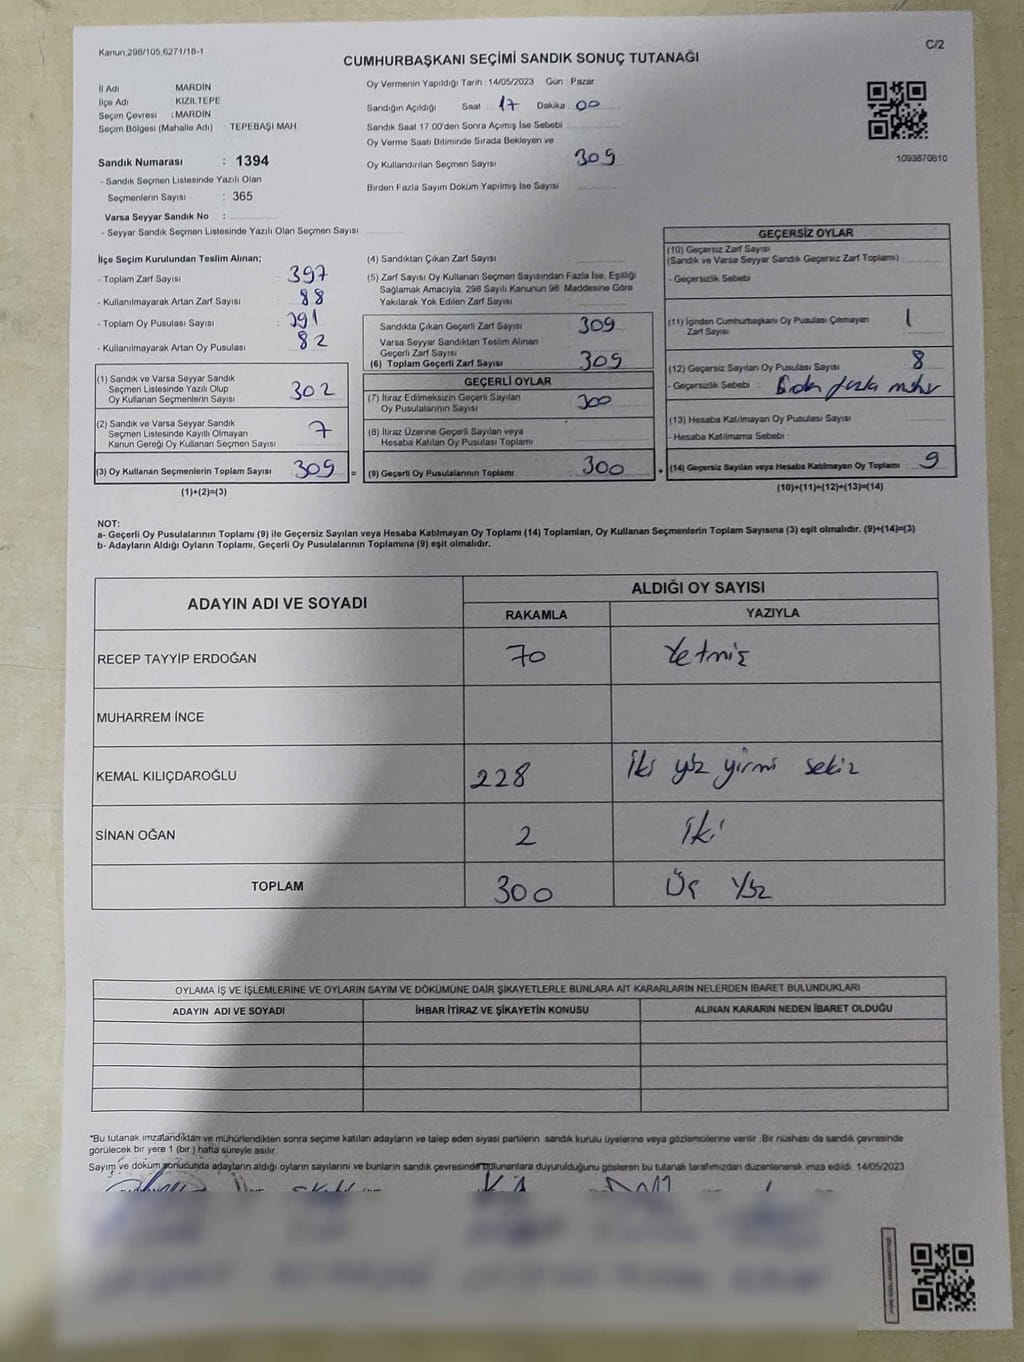 Kanun,298/105,6271/18-1
C/2
CUMHURBAŞKANI SEÇİMİ SANDIK SONUÇ TUTANAĞI
İl Adı MARDİN
İlçe Adı KIZILTEPE
Seçim Çevresi : MARDİN
Seçim Bölgesi (Mahalle Adı) : TEPEBAŞI MAH.
Sandık Numarası : 1394
- Sandık Seçmen Listesinde Yazılı Olan
Seçmenlerin Sayısı : 365
Varsa Seyyar Sandık No :
- Seyyar Sandık Seçmen Listesinde Yazılı Olan Seçmen Sayısı
Oy Vermenin Yapıldığı Tarih : 14/05/2023 Gün : Pazar
Sandığın Açıldığı Saat 17 Dakika 00
Sandık Saat 17 00'den Sonra Açımış İse Sebebi :
Oy Verme Saati Bitiminde Sırada Bekleyen ve
Oy Kullandırılan Seçmen Sayısı 309
Birden Fazla Sayım Döküm Yapılmış İse Sayısı
1093870610
İlçe Seçim Kurulundan Teslim Alınan;
- Toplam Zarf Sayısı : 397
- Kullanılmayarak Artan Zarf Sayısı : 88
- Toplam Oy Pusulası Sayısı : 391
- Kullanılmayarak Artan Oy Pusulası : 82
(1) Sandık ve Varsa Seyyar Sandık
Seçmen Listesinde Yazılı Olup
Oy Kullanan Seçmenlerin Sayısı 302
(2) Sandık ve Varsa Seyyar Sandık
Seçmen Listesinde Kayıtlı Olmayan
Kanun Gereği Oy Kullanan Seçmen Sayısı 7
(3) Oy Kullanan Seçmenlerin Toplam Sayısı 309 =
(1)+(2)=(3)
(4) Sandıktan Çıkan Zarf Sayısı
(5) Zarf Sayısı Oy Kullanan Seçmen Sayısından Fazla İse, Eşitliği
Sağlamak Amacıyla, 298 Sayılı Kanunun 98 Maddesine Göre
Yakılarak Yok Edilen Zarf Sayısı
Sandıkta Çıkan Geçerli Zarf Sayısı 309
Varsa Seyyar Sandıktan Teslim Alınan
Geçerli Zarf Sayısı
(6) Toplam Geçerli Zarf Sayısı 309
GEÇERLİ OYLAR
(7) İtiraz Edilmeksizin Geçerli Sayılan
Oy Pusulalarının Sayısı 300
(8) İtiraz Üzerine Geçerli Sayılan veya
Hesaba Katılan Oy Pusulası Toplamı
(9) Geçerli Oy Pusulalarının Toplamı 300 +
GEÇERSİZ OYLAR
(10) Geçersiz Zarf Sayısı
(Sandık ve Varsa Seyyar Sandık Geçersiz Zarf Toplamı)
- Geçersizlik Sebebi
(11) İçinden Cumhurbaşkanı Oy Pusulası Çıkmayan
Zarf Sayısı 1
(12) Geçersiz Sayılan Oy Pusulası Sayısı 8
- Geçersizlik Sebebi : Birden fazla mühür
(13) Hesaba Katılmayan Oy Pusulası Sayısı
- Hesaba Katılmama Sebebi :
(14) Geçersiz Sayılan veya Hesaba Katılmayan Oy Toplamı : 9
(10)+(11)+(12)+(13)=(14)
NOT:
a- Geçerli Oy Pusulalarının Toplamı (9) ile Geçersiz Sayılan veya Hesaba Katılmayan Oy Toplamı (14) Toplamları, Oy Kullanan Seçmenlerin Toplam Sayısına (3) eşit olmalıdır. (9)+(14)=(3)
b- Adayların Aldığı Oyların Toplamı, Geçerli Oy Pusulalarının Toplamına (9) eşit olmalıdır.
ADAYIN ADI VE SOYADI
ALDIĞI OY SAYISI
RAKAMLA YAZIYLA
RECEP TAYYİP ERDOĞAN 70 Yetmiş
MUHARREM İNCE
KEMAL KILIÇDAROĞLU 228 İki yüz yirmi sekiz
SİNAN OĞAN 2 İki
TOPLAM 300 Üç Yüz
OYLAMA İŞ VE İŞLEMLERİNE VE OYLARIN SAYIM VE DÖKÜMÜNE DAİR ŞİKAYETLERLE BUNLARA AİT KARARLARIN NELERDEN İBARET BULUNDUKLARI
ADAYIN ADI VE SOYADI İHBAR İTİRAZ VE ŞİKAYETİN KONUSU ALINAN KARARIN NEDEN İBARET OLDUĞU
*Bu tutanak imzalandıktan ve mühürlendikten sonra seçime katılan adayların ve talep eden siyasi partilerin sandık kurulu üyelerine veya gözlemcilerine verilir. Bir nüshası da sandık çevresinde
görülecek bir yere 1 (bir) hafta süreyle asılır.
Sayım ve döküm sonucunda adayların aldığı oyların sayılarını ve bunların sandık çevresinde bulunanlara duyurulduğunu gösteren bu tutanak tarafımızdan düzenlenerek imza edildi. 14/05/2023